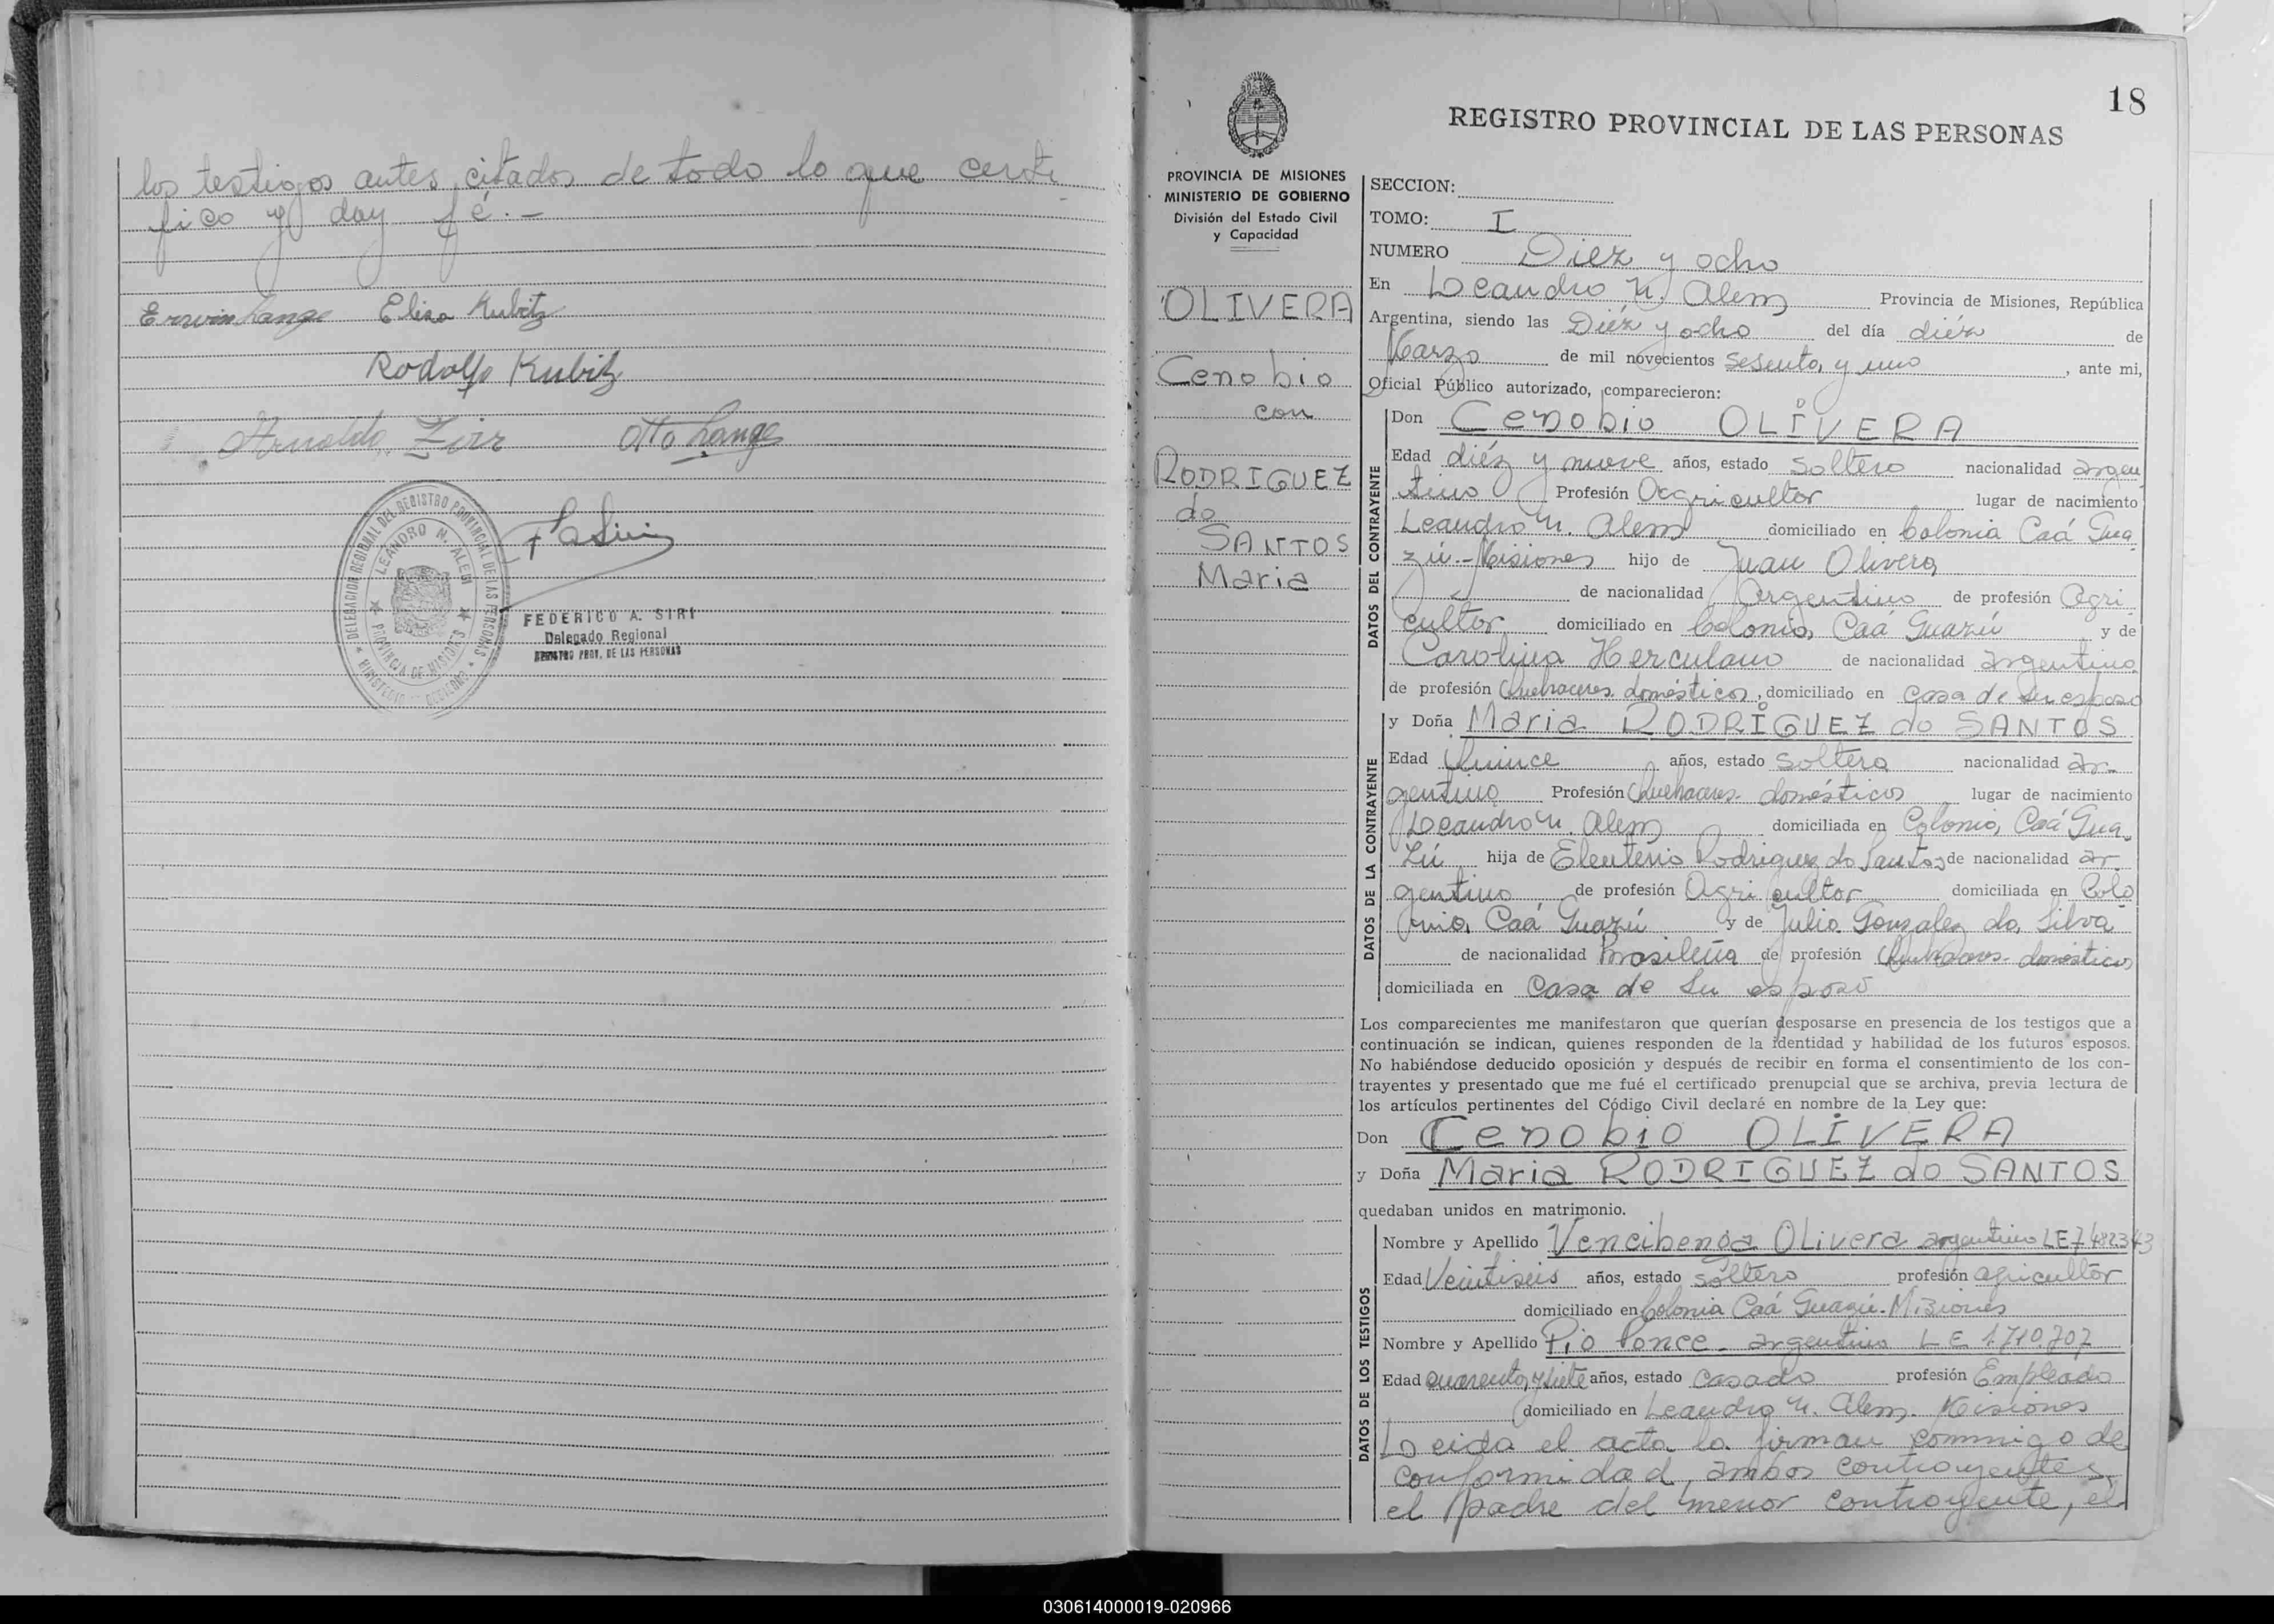 los testigos antes citados de todo lo que certi
fico y doy fé.-
Erwin Lange Elisa Kubitz
Rodolfo Kubitz
Arnoldo Otto Lange
DELEGACION REGIONAL DEL REGISTRO PROVINCIAL DE LAS PERSONAS
LEANDRO N. ALEM
PROVINCIA DE MISIONES
MINISTERIO DE GOBIERNO
FEDERICO A. SIRI
Delegado Regional
REGISTRO PROV. DE LAS PERSONAS
18
REGISTRO PROVINCIAL DE LAS PERSONAS
PROVINCIA DE MISIONES
MINISTERIO DE GOBIERNO
División del Estado Civil
y Capacidad
OLIVERA
Cenobio
con
RODRIGUEZ
do
SANTOS
Maria
SECCION:
TOMO: I
NUMERO Diez y ocho
En Leandro N. Alem Provincia de Misiones, República
Argentina, siendo las Diéz y ocho del día diéz de
Marzo de mil novecientos sesenta y uno, ante mi,
Oficial Público autorizado, comparecieron:
DATOS DEL CONTRAYENTE
Don Cenobio OLIVERA
Edad diéz y nueve años, estado soltero nacionalidad argen
tino Profesión Agricultor lugar de nacimiento
Leandro N. Alem domiciliado en Colonia Caá Gua
zú.-Misiones hijo de Juan Olivera
de nacionalidad Argentino de profesión Agri
cultor domiciliado en Colonia Caá Guazú y de
Carolina Herculano de nacionalidad argentina
de profesión Quehaceres domésticos, domiciliado en casa de su esposo
DATOS DE LA CONTRAYENTE
y Doña Maria RODRIGUEZ do SANTOS
Edad Quince años, estado soltera nacionalidad ar-
gentina Profesión Quehaceres domésticos lugar de nacimiento
Leandro N. Alem domiciliada en Colonia Caá Gua
zú hija de Eleuterio Rodriguez do Santos de nacionalidad ar
gentino de profesión Agricultor domiciliada en Colo
nia Caá Guazú y de Julia Gonzalez da Silva
de nacionalidad Brasileña de profesión Quehaceres domésticos
domiciliada en Casa de su esposo
Los comparecientes me manifestaron que querían desposarse en presencia de los testigos que a
continuación se indican, quienes responden de la identidad y habilidad de los futuros esposos.
No habiéndose deducido oposición y después de recibir en forma el consentimiento de los con-
trayentes y presentado que me fué el certificado prenupcial que se archiva, previa lectura de
los artículos pertinentes del Código Civil declaré en nombre de la Ley que:
Don Cenobio OLIVERA
y Doña Maria RODRIGUEZ do SANTOS
quedaban unidos en matrimonio.
DATOS DE LOS TESTIGOS
Nombre y Apellido Olivera argentino LE 7.482.343
Edad Veintiseis años, estado soltero profesión agricultor
domiciliado en Colonia Caá Guazú-Misiones
Nombre y Apellido Pio Ponce - argentino LE 1.710.707
Edad cuarenta y siete años, estado casado profesión Empleado
domiciliado en Leandro N. Alem. Misiones
Leida el acta la firman conmigo de
conformidad, ambos contrayentes,
el padre del menor contrayente, el
030614000019-020966